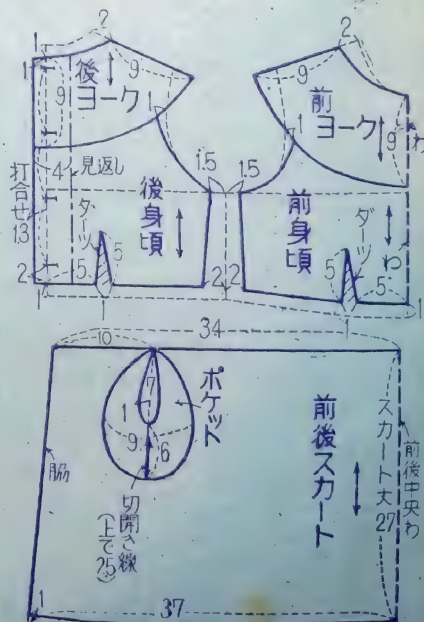 1
2
1
9
9
後
ヨーク
1
4
見返し
打合せ1.3
ダーツ
後身頃
1.5
5
5
2
1
1
2
2
9
前
ヨーク
9
わ
1
1.5
前身頃
ダーツ
わ
5
5
2
1
1
34
10
7
1
9
6
ポケット
切開き線
(上で2.5)
脇
前後スカート
スカート丈27
前後中央わ
1
37